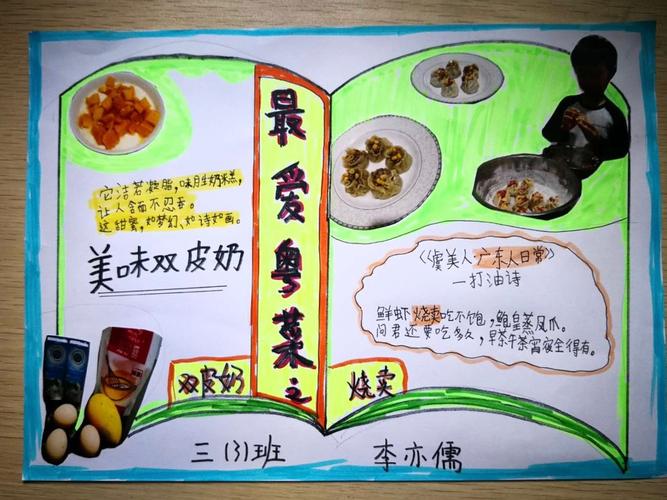 最爱粤菜之
它洁若凝脂，味月生奶米糕，
让人含而不忍吞。
这甜蜜，如梦幻、如诗如画。
美味双皮奶
双皮奶
《虞美人·广东人日常》
一打油诗
鲜虾烧卖吃不饱，鲍皇蒸凤爪。
问君还要吃多久，早茶午茶宵夜全得有。
烧卖
三（3）班
李亦儒